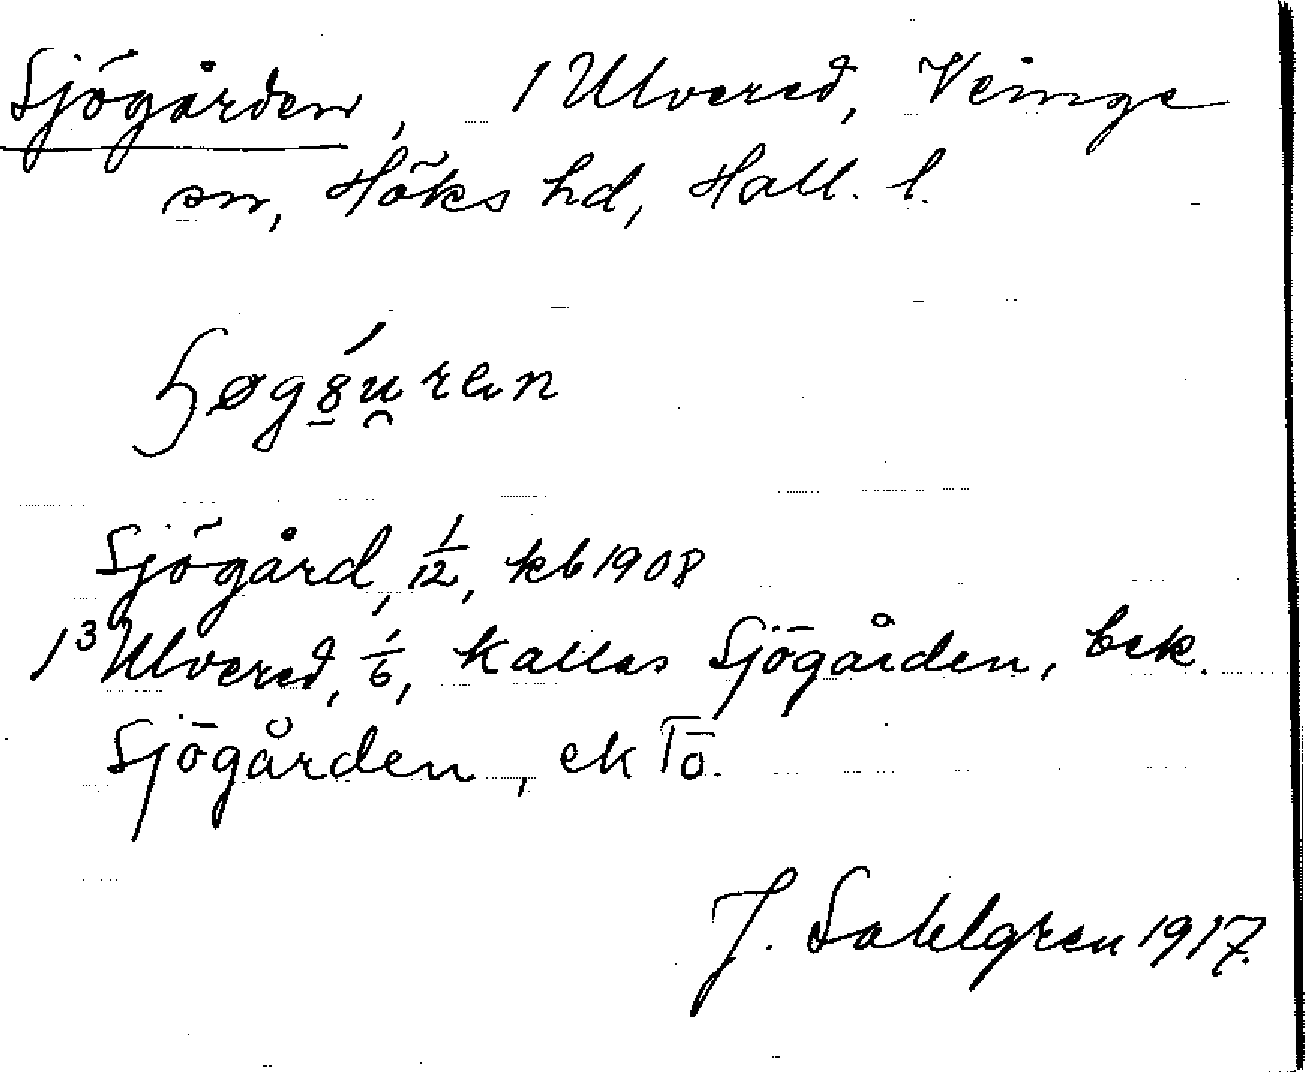 Sjögården, 1 Ulvered, Veinge
sn, Höks hd, Hall. l.
Sjögård, 1/12, kb 1908
1³ Ulvered, 1/6, kallas Sjögården, bek.
Sjögården, ek Tö.
J. Sahlgren 1917.